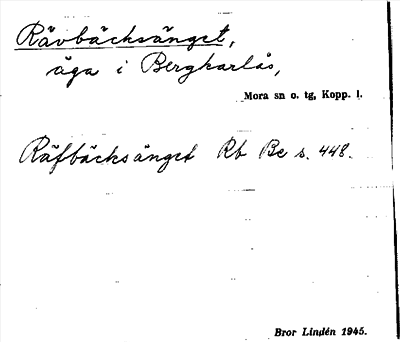 Rävbäcksänget,
äga i Bergkarlås,
Mora sn o. tg, Kopp. l.
Räfbäcksänget Rb Bc s. 448.
Bror Lindén 1945.